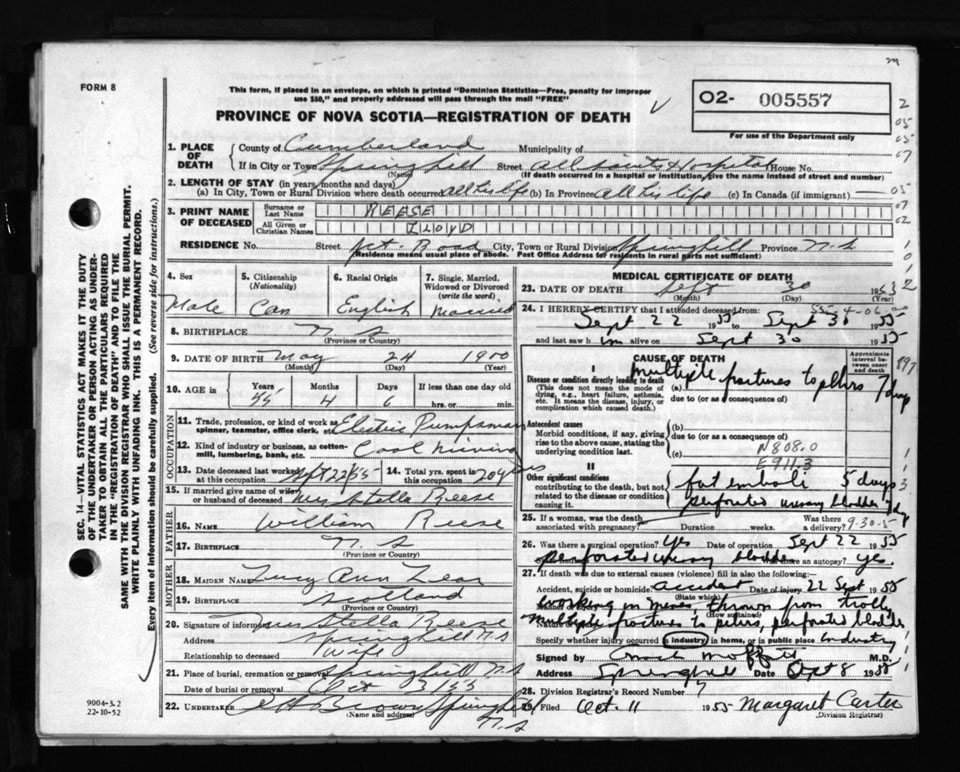 FORM 8
This form, if placed in an envelope, on which is printed "Dominion Statistics—Free, penalty for improper
use $50," and properly addressed will pass through the mail "FREE"
PROVINCE OF NOVA SCOTIA—REGISTRATION OF DEATH
02- 005557
For use of the Department only
1. PLACE OF DEATH
County of Cumberland Municipality of
If in City or Town Springhill Street All Saints Hospital House No.
(Name) (If death occurred in a hospital or institution, give the name instead of street and number)
2. LENGTH OF STAY (in years, months and days)
(a) In City, Town or Rural Division where death occurred all his life (b) In Province all his life (c) In Canada (if immigrant)
3. PRINT NAME OF DECEASED
Surname or Last Name REESE
All Given or Christian Names LLOYD
RESIDENCE No. Street Jct. Road City, Town or Rural Division Springhill Province N.S
Residence means usual place of abode. Post Office Address for residents in rural parts not sufficient)
4. Sex Male
5. Citizenship (Nationality) Can
6. Racial Origin English
7. Single, Married, Widowed or Divorced (write the word) Married
8. BIRTHPLACE N.S
(Province or Country)
9. DATE OF BIRTH May 24 1900
(Month) (Day) (Year)
10. AGE in Years 55 Months 4 Days 6 If less than one day old hrs. or min.
OCCUPATION
11. Trade, profession, or kind of work as spinner, teamster, office clerk, or Electric Pumpsman
12. Kind of industry or business, as cotton-mill, lumbering, bank, etc. Coal mining
13. Date deceased last worked at this occupation Sept 22/55 14. Total yrs. spent in this occupation 20 yrs
15. If married give name of wife or husband of deceased Mrs Stella Reese
FATHER
16. NAME William Reese
17. BIRTHPLACE N.S
(Province or Country)
MOTHER
18. MAIDEN NAME Lucy Ann
19. BIRTHPLACE Scotland
(Province or Country)
20. Signature of informant Mrs Stella Reese
Address Springhill N.S
Relationship to deceased Wife
21. Place of burial, cremation or removal Springhill N.S
Date of burial or removal Oct 3/55
22. UNDERTAKER Brown Springhill N.S
(Name and address)
MEDICAL CERTIFICATE OF DEATH
23. DATE OF DEATH Sept 30 19
(Month) (Day) (Year)
24. I HEREBY CERTIFY that I attended deceased from:
Sept 22 1955 to Sept 30 1955
and last saw him alive on Sept 30 1955
CAUSE OF DEATH
Approximate interval between onset and death
I
Disease or condition directly leading to death (a) multiple fractures to pelvis 7 days
(This does not mean the mode of dying, e.g., heart failure, asthenia, etc. It means the disease, injury, or complication which caused death.)
due to (or as a consequence of)
Antecedent causes
Morbid conditions, if any, giving rise to the above cause, stating the underlying condition last.
(b)
due to (or as a consequence of)
(c)
N808.0
E911.3
II
Other significant conditions contributing to the death, but not related to the disease or condition causing it.
fat emboli 5 days
perforated urinary bladder 7 d
25. If a woman, was the death associated with pregnancy? Duration weeks. Was there a delivery?
9-30-5
26. Was there a surgical operation? Yes Date of operation Sept 22 1955
perforated urinary bladder Was there an autopsy? yes.
27. If death was due to external causes (violence) fill in also the following:
Accident, suicide or homicide? accident Date of injury 22 Sept 1955
(State which)
working in mines, thrown from trolly
(How sustained)
multiple fractures to pelvis, perforated bladder
Specify whether injury occurred in industry, in home, or in public place industry
Signed by Moffatt M.D.
Address Springhill Date Oct 8 1955
28. Division Registrar's Record Number 17
29. Filed Oct. 11 1955 Margaret Carter
(Division Registrar)
SEC. 14—VITAL STATISTICS ACT MAKES IT THE DUTY
OF THE UNDERTAKER OR PERSON ACTING AS UNDER-
TAKER TO OBTAIN ALL THE PARTICULARS REQUIRED
IN THE "REGISTRATION OF DEATH" AND TO FILE THE
SAME WITH THE DIVISION REGISTRAR WHO SHALL ISSUE THE BURIAL PERMIT.
WRITE PLAINLY WITH UNFADING INK. THIS IS A PERMANENT RECORD.
Every item of information should be carefully supplied. (See reverse side for instructions.)
9004-3.2
22-10-52